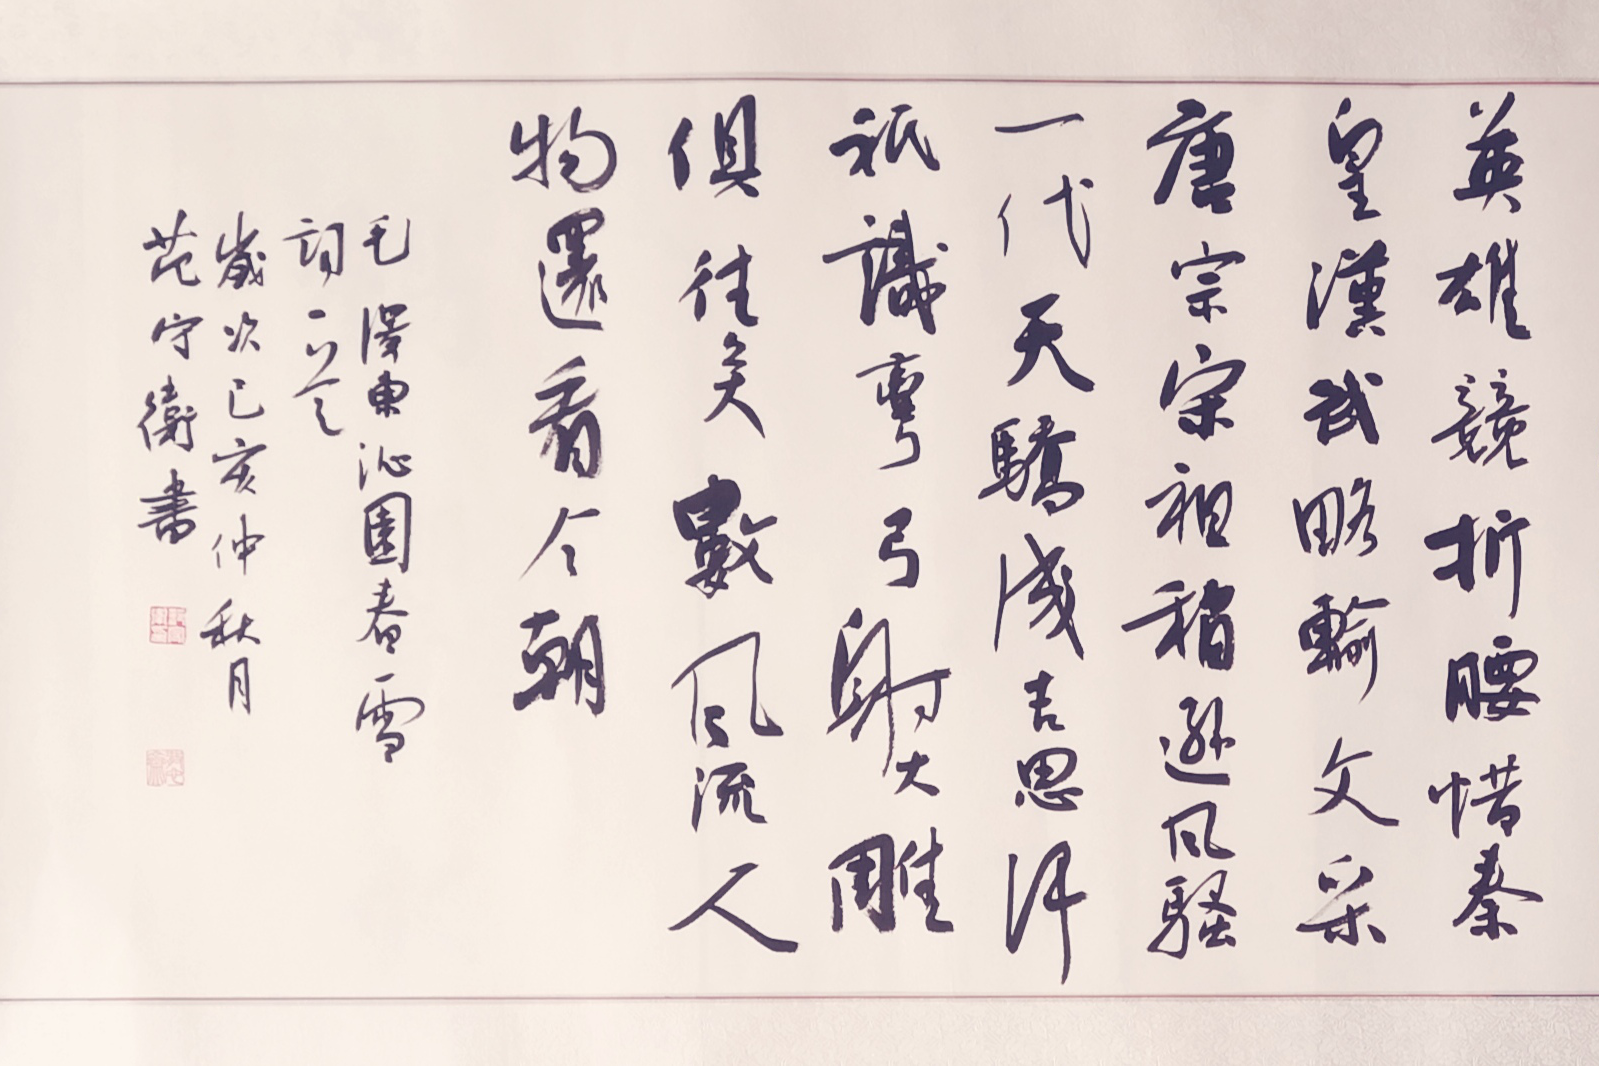 英雄競折腰惜秦
皇漢武略輸文采
唐宗宋祖稍遜風騷
一代天驕成吉思汗
祇識彎弓射大雕
俱往矣數風流人
物還看今朝
毛澤東沁園春雪
詞一首
歲次己亥仲秋月
范守衛書